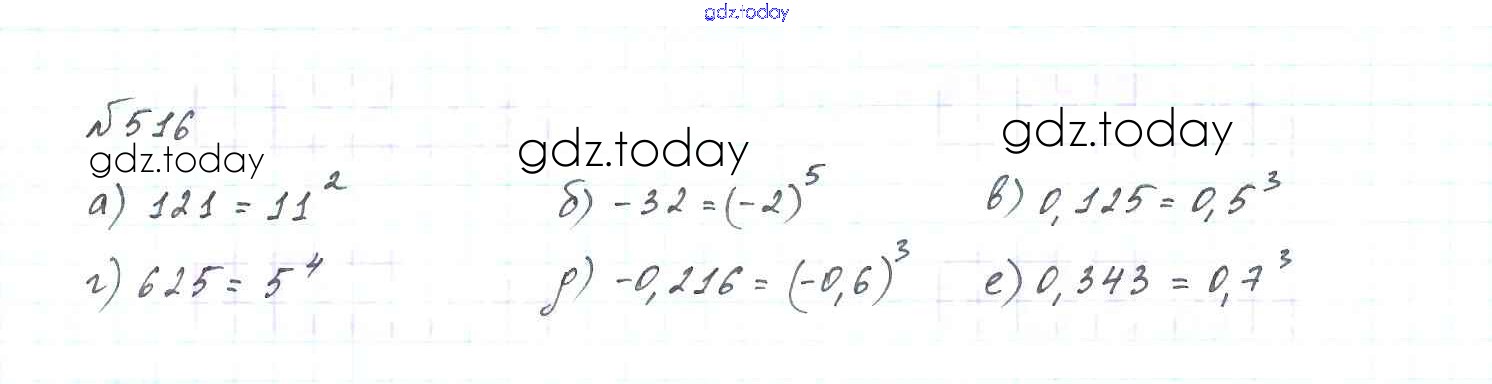 gdz.today
№516
gdz.today gdz.today gdz.today
а) 121 = 11² б) -32 = (-2)⁵ в) 0,125 = 0,5³
г) 625 = 5⁴ д) -0,216 = (-0,6)³ е) 0,343 = 0,7³